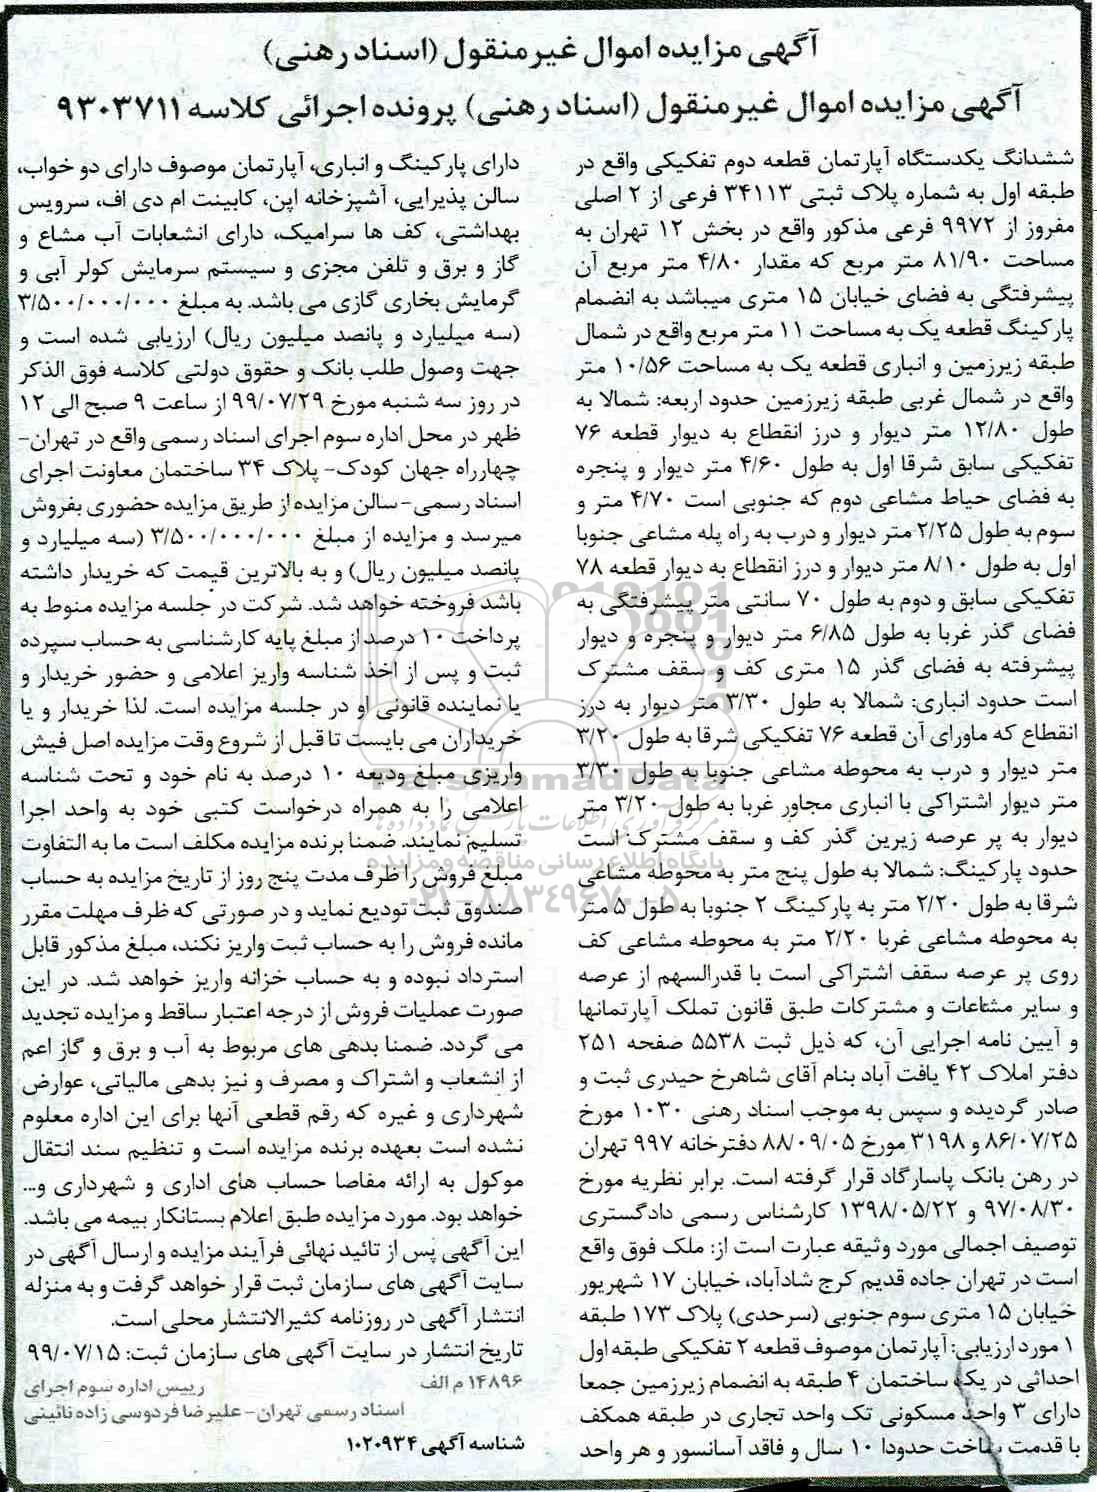 آگهی مزایده اموال غیرمنقول (اسناد رهنی)
آگهی مزایده اموال غیرمنقول (اسناد رهنی) پرونده اجرائی کلاسه ۹۳۰۳۷۱۱
ششدانگ یکدستگاه آپارتمان قطعه دوم تفکیکی واقع در
طبقه اول به شماره پلاک ثبتی ۳۴۱۱۳ فرعی از ۲ اصلی
مفروز از ۹۹۷۲ فرعی مذکور واقع در بخش ۱۲ تهران به
مساحت ۸۱/۹۰ متر مربع که مقدار ۴/۸۰ متر مربع آن
پیشرفتگی به فضای خیابان ۱۵ متری میباشد به انضمام
پارکینگ قطعه یک به مساحت ۱۱ متر مربع واقع در شمال
طبقه زیرزمین و انباری قطعه یک به مساحت ۱۰/۵۶ متر
واقع در شمال غربی طبقه زیرزمین حدود اربعه: شمالا به
طول ۱۲/۸۰ متر دیوار و درز انقطاع به دیوار قطعه ۷۶
تفکیکی سابق شرقا اول به طول ۴/۶۰ متر دیوار و پنجره
به فضای حیاط مشاعی دوم که جنوبی است ۴/۷۰ متر و
سوم به طول ۲/۲۵ متر دیوار و درب به راه پله مشاعی جنوبا
اول به طول ۸/۱۰ متر دیوار و درز انقطاع به دیوار قطعه ۷۸
تفکیکی سابق و دوم به طول ۷۰ سانتی متر پیشرفتگی به
فضای گذر غربا به طول ۶/۸۵ متر دیوار و پنجره و دیوار
پیشرفته به فضای گذر ۱۵ متری کف و سقف مشترک
است حدود انباری: شمالا به طول ۳/۳۰ متر دیوار به درز
انقطاع که ماورای آن قطعه ۷۶ تفکیکی شرقا به طول ۳/۲۰
متر دیوار و درب به محوطه مشاعی جنوبا به طول ۳/۳۰
متر دیوار اشتراکی با انباری مجاور غربا به طول ۳/۲۰ متر
دیوار به پر عرصه زیرین گذر کف و سقف مشترک است
حدود پارکینگ: شمالا به طول پنج متر به محوطه مشاعی
شرقا به طول ۲/۲۰ متر به پارکینگ ۲ جنوبا به طول ۵ متر
به محوطه مشاعی غربا ۲/۲۰ متر به محوطه مشاعی کف
روی پر عرصه سقف اشتراکی است با قدرالسهم از عرصه
و سایر مشاعات و مشترکات طبق قانون تملک آپارتمانها
و آیین نامه اجرایی آن، که ذیل ثبت ۵۵۳۸ صفحه ۲۵۱
دفتر املاک ۴۲ یافت آباد بنام آقای شاهرخ حیدری ثبت و
صادر گردیده و سپس به موجب اسناد رهنی ۱۰۳۰ مورخ
۸۶/۰۷/۲۵ و ۳۱۹۸ مورخ ۸۸/۰۹/۰۵ دفترخانه ۹۹۷ تهران
در رهن بانک پاسارگاد قرار گرفته است. برابر نظریه مورخ
۹۷/۰۸/۳۰ و ۱۳۹۸/۰۵/۲۲ کارشناس رسمی دادگستری
توصیف اجمالی مورد وثیقه عبارت است از: ملک فوق واقع
است در تهران جاده قدیم کرج شادآباد، خیابان ۱۷ شهریور
خیابان ۱۵ متری سوم جنوبی (سرحدی) پلاک ۱۷۳ طبقه
۱ مورد ارزیابی: آپارتمان موصوف قطعه ۲ تفکیکی طبقه اول
احداثی در یک ساختمان ۴ طبقه به انضمام زیرزمین جمعا
دارای ۳ واحد مسکونی تک واحد تجاری در طبقه همکف
با قدمت ساخت حدودا ۱۰ سال و فاقد آسانسور و هر واحد
دارای پارکینگ و انباری، آپارتمان موصوف دارای دو خواب،
سالن پذیرایی، آشپزخانه اپن، کابینت ام دی اف، سرویس
بهداشتی، کف ها سرامیک، دارای انشعابات آب مشاع و
گاز و برق و تلفن مجزی و سیستم سرمایش کولر آبی و
گرمایش بخاری گازی می باشد. به مبلغ ۳/۵۰۰/۰۰۰/۰۰۰
(سه میلیارد و پانصد میلیون ریال) ارزیابی شده است و
جهت وصول طلب بانک و حقوق دولتی کلاسه فوق الذکر
در روز سه شنبه مورخ ۹۹/۰۷/۲۹ از ساعت ۹ صبح الی ۱۲
ظهر در محل اداره سوم اجرای اسناد رسمی واقع در تهران-
چهارراه جهان کودک- پلاک ۳۴ ساختمان معاونت اجرای
اسناد رسمی-سالن مزایده از طریق مزایده حضوری بفروش
میرسد و مزایده از مبلغ ۳/۵۰۰/۰۰۰/۰۰۰ (سه میلیارد و
پانصد میلیون ریال) و به بالاترین قیمت که خریدار داشته
باشد فروخته خواهد شد. شرکت در جلسه مزایده منوط به
پرداخت ۱۰ درصد از مبلغ پایه کارشناسی به حساب سپرده
ثبت و پس از اخذ شناسه واریز اعلامی و حضور خریدار و
یا نماینده قانونی او در جلسه مزایده است. لذا خریدار و یا
خریداران می بایست تا قبل از شروع وقت مزایده اصل فیش
واریزی مبلغ ودیعه ۱۰ درصد به نام خود و تحت شناسه
اعلامی را به همراه درخواست کتبی خود به واحد اجرا
تسلیم نمایند. ضمنا برنده مزایده مکلف است ما به التفاوت
مبلغ فروش را ظرف مدت پنج روز از تاریخ مزایده به حساب
صندوق ثبت تودیع نماید و در صورتی که ظرف مهلت مقرر
مانده فروش را به حساب ثبت واریز نکند، مبلغ مذکور قابل
استرداد نبوده و به حساب خزانه واریز خواهد شد. در این
صورت عملیات فروش از درجه اعتبار ساقط و مزایده تجدید
می گردد. ضمنا بدهی های مربوط به آب و برق و گاز اعم
از انشعاب و اشتراک و مصرف و نیز بدهی مالیاتی، عوارض
شهرداری و غیره که رقم قطعی آنها برای این اداره معلوم
نشده است بعهده برنده مزایده است و تنظیم سند انتقال
موکول به ارائه مفاصا حساب های اداری و شهرداری و...
خواهد بود. مورد مزایده طبق اعلام بستانکار بیمه می باشد.
این آگهی پس از تائید نهائی فرآیند مزایده و ارسال آگهی در
سایت آگهی های سازمان ثبت قرار خواهد گرفت و به منزله
انتشار آگهی در روزنامه کثیرالانتشار محلی است.
تاریخ انتشار در سایت آگهی های سازمان ثبت: ۹۹/۰۷/۱۵
۱۴۸۹۶ م الف رییس اداره سوم اجرای
اسناد رسمی تهران- علیرضا فردوسی زاده نائینی
شناسه آگهی ۱۰۲۰۹۳۴
ParsNamadData
مرکز فرآوری اطلاعات پارس نماد داده ها
پایگاه اطلاع رسانی مناقصه و مزایده
۰۲۱-۸۸۳۴۹۶۷۰-۵